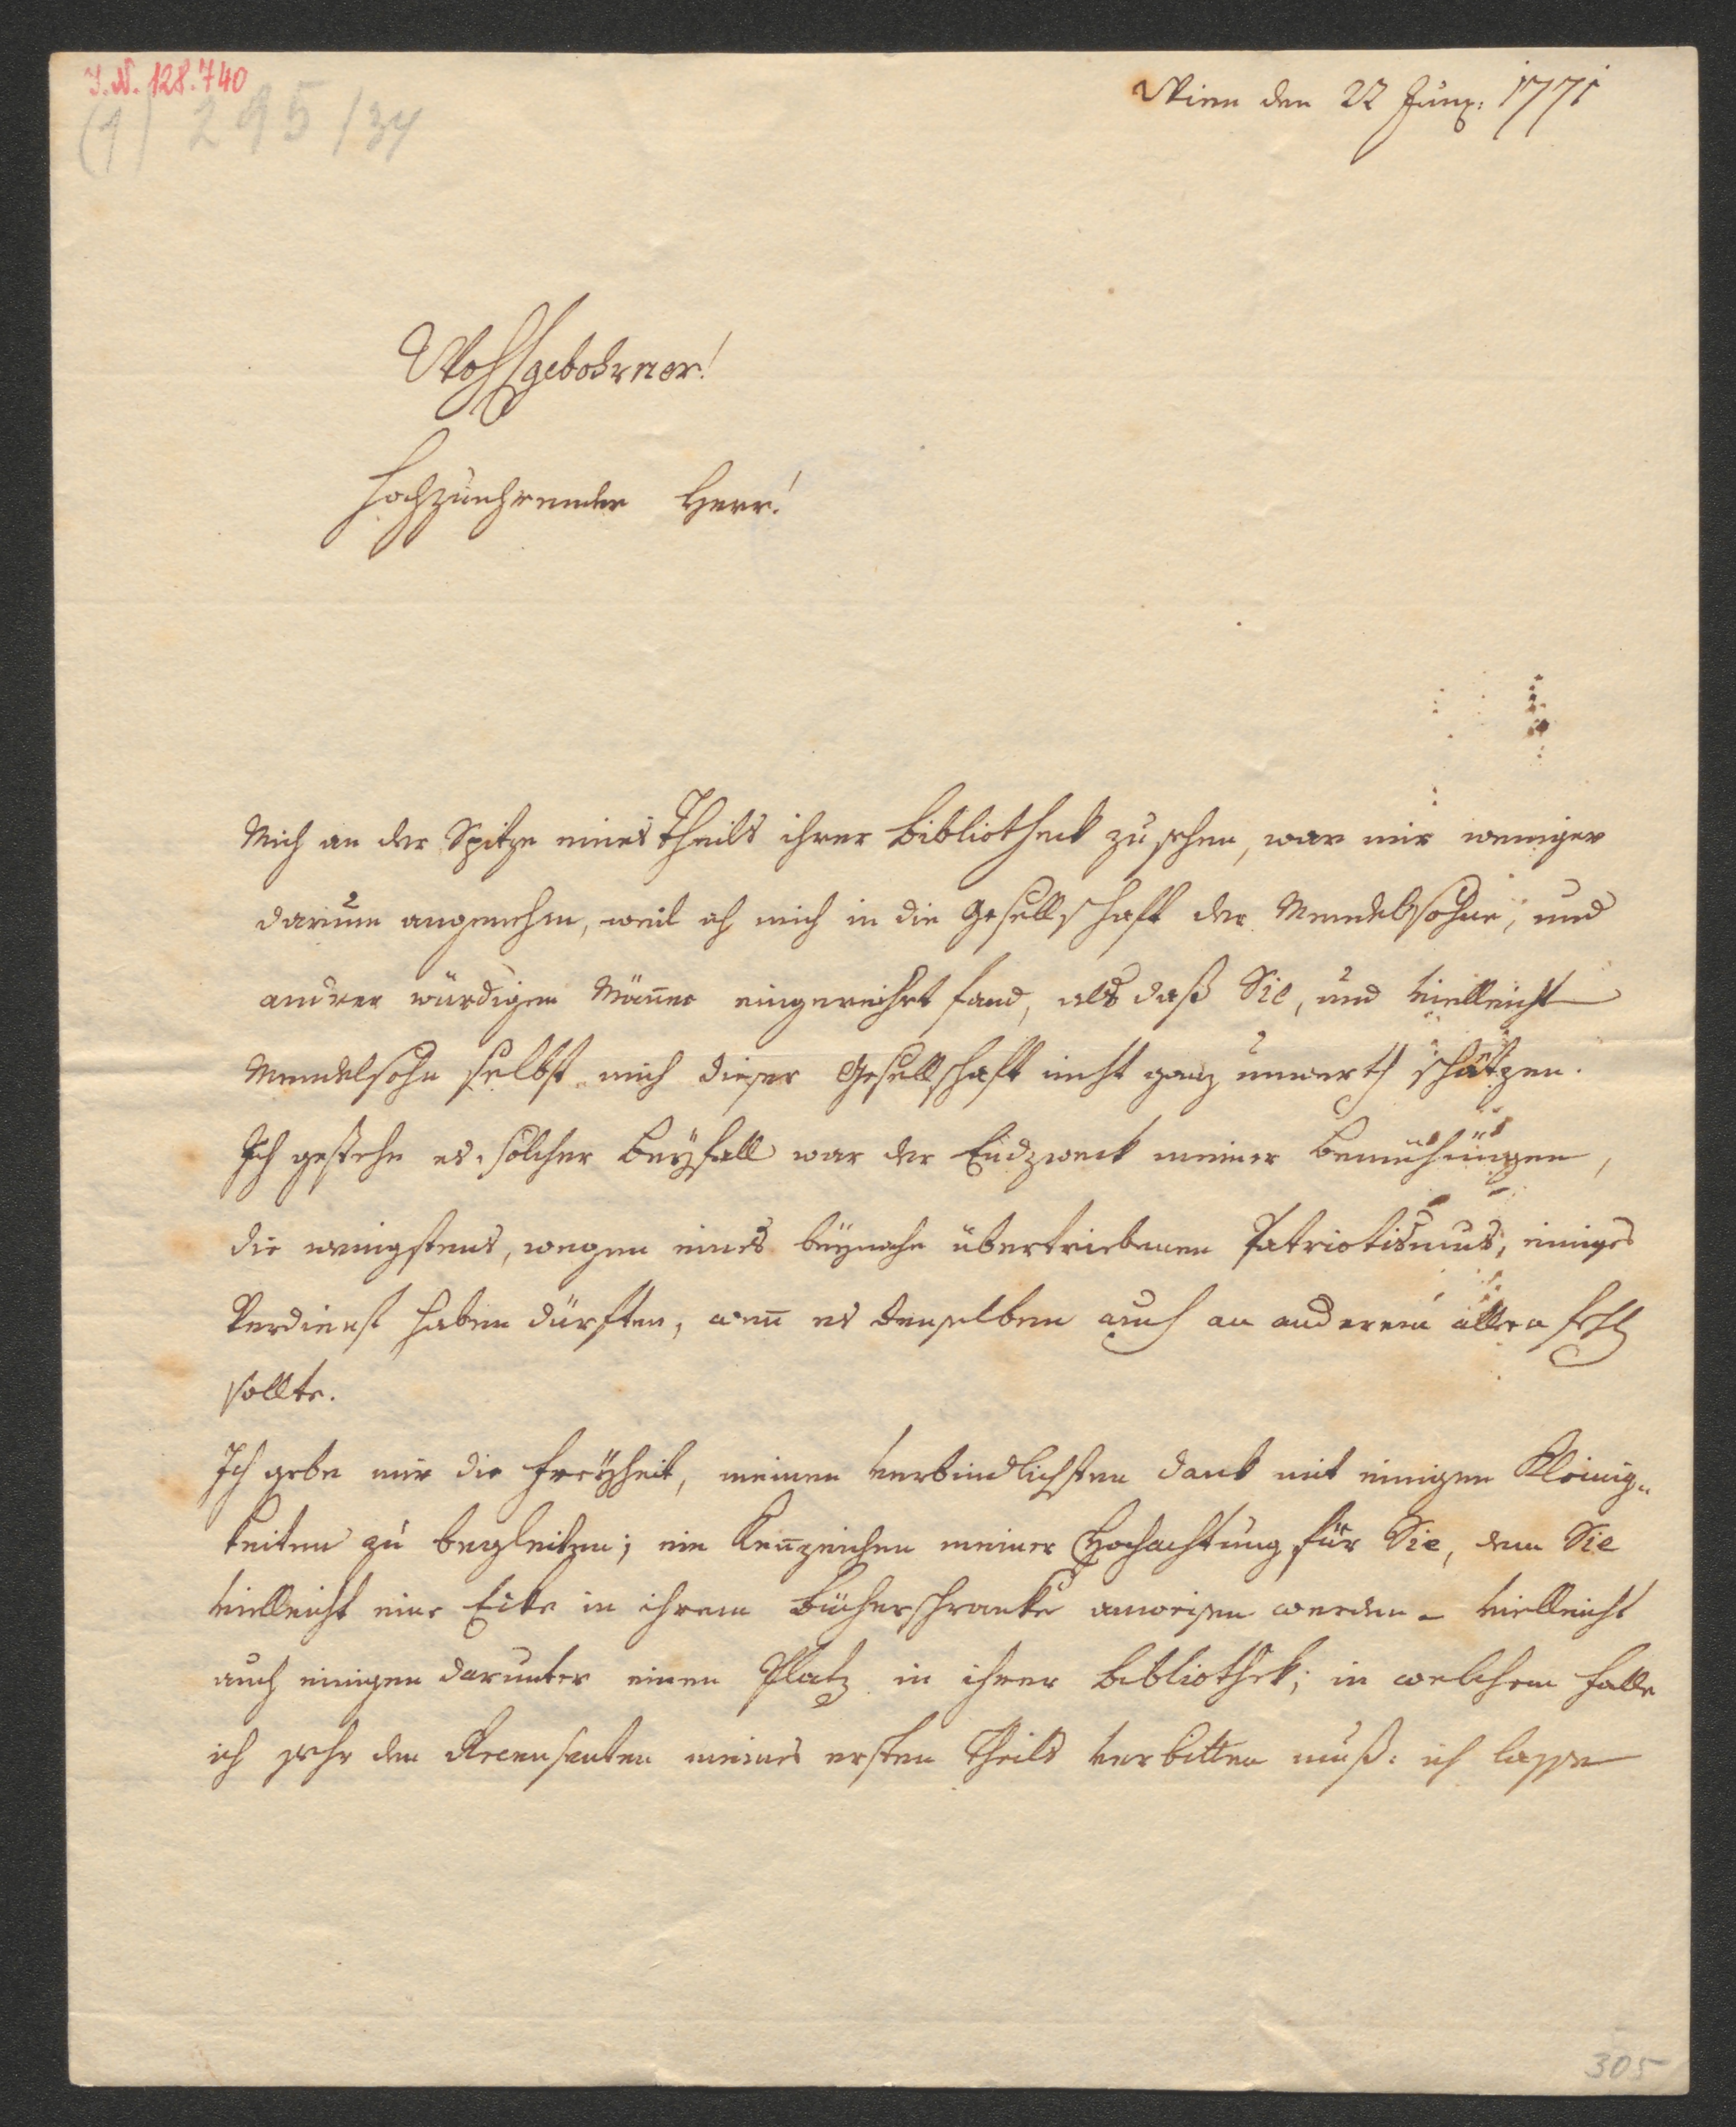 I.N. 128.740
(1) 295/34
Wien den 22 Juny: 1771
Wohlgebohrner!
Hochzuehrender Herr!
Mich an der Spitze eines Theils ihrer Bibliotheck zu sehen, war mir weniger
darum angenehm, weil ich mich in die Gesellschaft der Mendelsohne, und
andrer würdigen Mäner eingereihet fand, als daß Sie, und vielleicht
Mendelsohn selbst mich dieser Gesellschaft nicht ganz unwerth schätzen.
Ich gestehe es, solcher Beyfall war der Endzweck meiner Bemühungen,
die wenigstens, wegen eines beynahe übertriebenen Patriotismus, einiges
Verdienst haben dürften, wen es denselben auch an anderem allen
sollte.
Ich gebe mir die Freyheit, meinen verbindlichsten Dank mit einigen Kleinig-
keiten zu begleiten; ein Kenzeichen meiner Hochachtung für Sie, dem Sie
vielleicht eine Ecke in ihrem Bücherschranke anweisen werden – vielleicht
auch einigen darunter einen Platz in ihrer Bibliothek; in welchem Falle
ich sehr den Recensenten meines ersten Theils verbitten muß: ich lasse
305